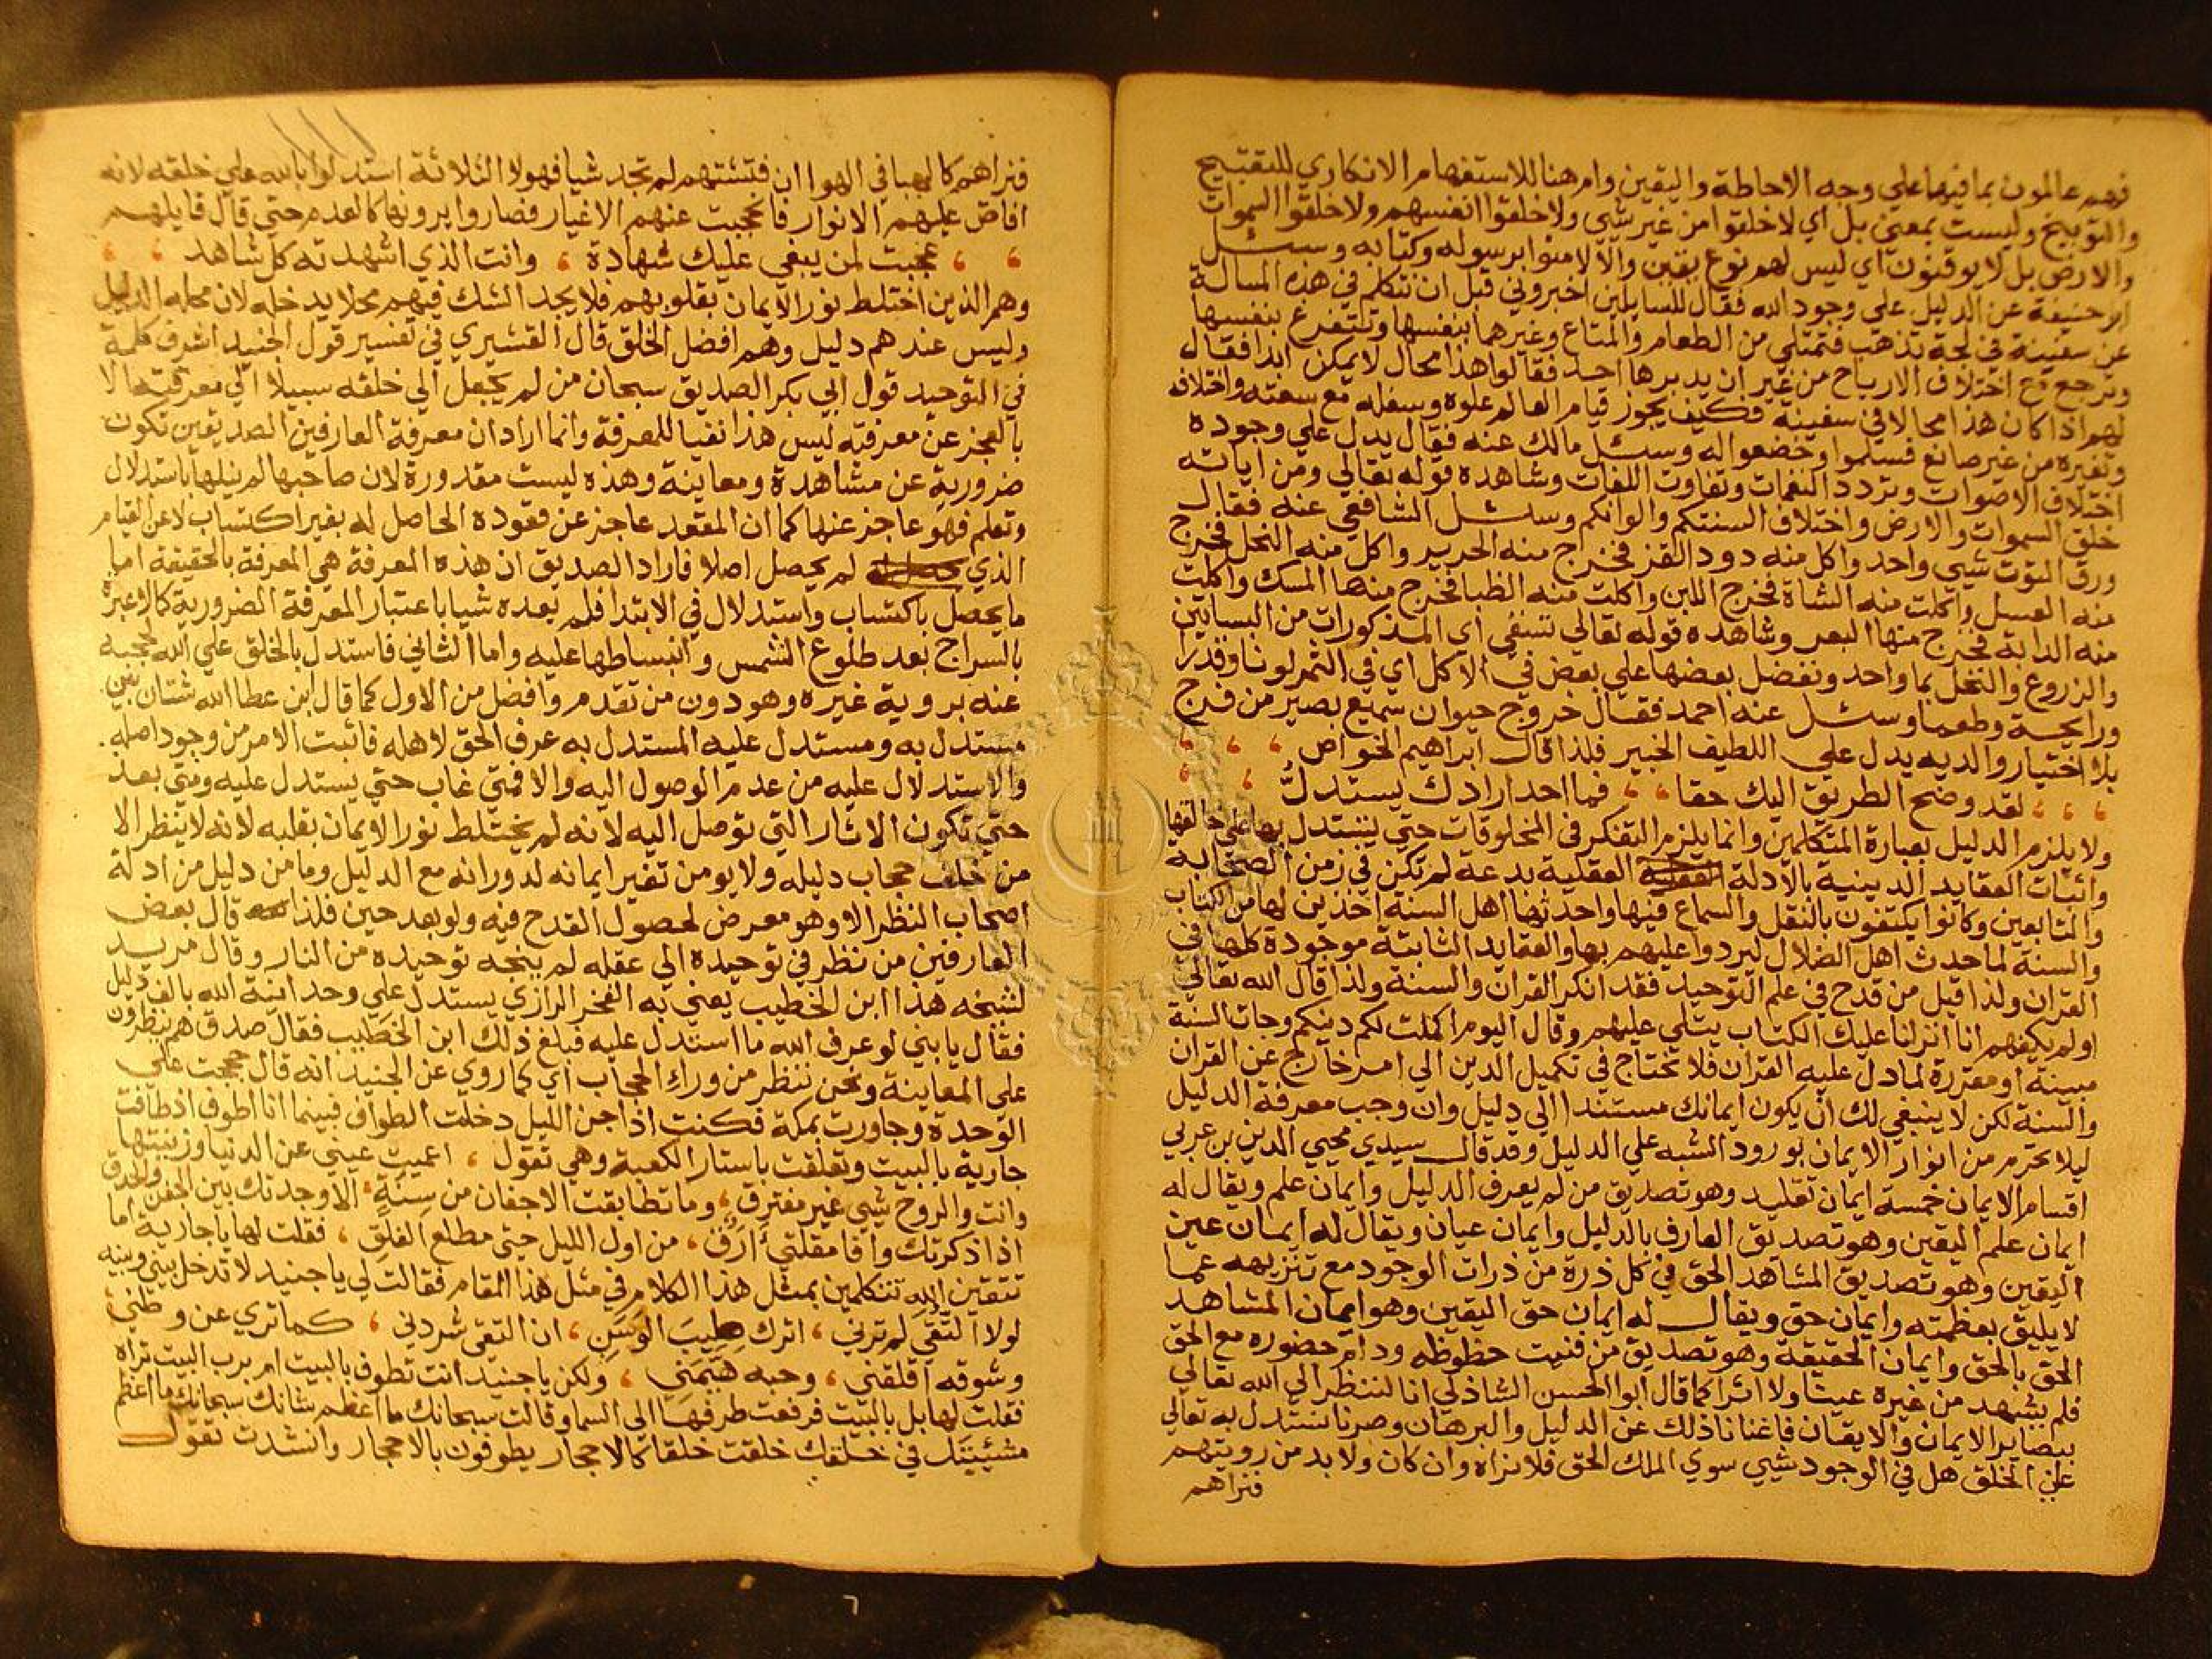 فهم عالمون بما فيها علي وجه الاحاطة واليقين وام هنا للاستفهام الانكاري للتقبيح
والتوبيخ وليست بمعني بل اي لا خلقوا من غير شي ولا خلقوا انفسهم ولا خلقوا السموات
والارض بل لا يوقنون اي ليس لهم نوع يقين والا لامنوا برسوله وكتابه وسئل
ابو حنيفة عن الدليل علي وجود الله فقال للسايلين اخبروني قبل ان نتكلم في هذه المسالة
عن سفينة في لجة تذهب فتمتلي من الطعام والمتاع وغيرهما بنفسها وتتفرغ بنفسها
وترجع مع اختلاف الارياح من غير ان يدبرها احد فقالوا هذا محال لا يمكن ابدا فقال
لهم اذا كان هذا محالا في سفينة فكيف يجوز قيام العالم علوه وسفله مع سعته واختلاف
وتغيره من غير صانع فسلموا وخضعوا له وسئل مالك عنه فقال يدل علي وجوده
اختلاف الاصوات وتردد النغمات وتفاوت اللغات وشاهده قوله تعالي ومن اياته
خلق السموات والارض واختلاف السنتكم والوانكم وسئل الشافعي عنه فقال
ورق التوت شيي واحد واكل منه دود القز فخرج منه الحرير واكل منه النحل فخرج
منه العسل واكلت منه الشاة فخرج اللبن واكلت منه الظبا فخرج منها المسك واكلت
منه الدابة فخرج منها البعر وشاهده قوله تعالي تسقي اي المذكورات من البساتين
والزروع والنخل بما واحد ونفضل بعضها علي بعض في الاكل اي في الثمر لونا وقدرا
ورايحة وطعما وسئل عنه احمد فقال خروج حيوان سميع بصير من فرج
بلا اختيار والديه يدل علي اللطيف الخبير فلذا قال ابراهيم الخواص
لقد وضح الطريق اليك حقا فما احد ارادك يستدل
ولا يلزم الدليل بعبارة المتكلمين وانما يلزم التفكر في المخلوقات حتي يستدل بها علي خالقها
واثبات العقايد الدينية بالادلة العقلية بدعة لم تكن في زمن الصحابة
والتابعين وكانوا يكتفون بالنقل والسماع فيها واحدثها اهل السنة اخذين لها من الكتاب
والسنة لما حدث اهل الضلال ليردوا عليهم بها والعقايد الثابتة موجودة كلها في
القران ولذا قيل من قدح في علم التوحيد فقد انكر القران والسنة ولذا قال الله تعالي
اولم يكفهم انا انزلنا عليك الكتاب يتلي عليهم وقال اليوم اكملت لكم دينكم وجات السنة
مبينة او مقررة لما دل عليه القران فلا تحتاج في تكميل الدين الي امر خارج عن القران
والسنة لكن لا ينبغي لك ان يكون ايمانك مستندا الي دليل وان وجب معرفة الدليل
ليلا تحرم من انوار الايمان بورود الشبه علي الدليل وقد قال سيدي محيي الدين بن عربي
اقسام الايمان خمسة ايمان تقليد وهو تصديق من لم يعرف الدليل وايمان علم ويقال له
ايمان علم اليقين وهو تصديق العارف بالدليل وايمان عيان ويقال له ايمان عين
اليقين وهو تصديق المشاهد الحق في كل ذرة من ذرات الوجود مع تنزيهه عما
لا يليق بعظمته وايمان حق ويقال له ايمان حق اليقين وهو ايمان المشاهد
الحق بالحق وايمان الحقيقة وهو تصديق من فنيت حظوظه ودام حضوره مع الحق
فلم يشهد من غيره عينا ولا اثرا كما قال ابو الحسن الشاذلي انا لننظر الي الله تعالي
ببصاير الايمان والايقان فاغنانا ذلك عن الدليل والبرهان وصرنا نستدل به تعالي
علي الخلق هل في الوجود شيي سوي الملك الحق فلا نراه وان كان ولا بد من رويتهم
فنراهم
فنراهم كالهبا في الهوا ان فتشتهم لم تجد شيا فهولا الثلاثة استدلوا بالله علي خلقه لانه
افاض عليهم الانوار فانحجبت عنهم الاغيار فصاروا يرونها كالعدم حتي قال قايلهم
عجبت لمن يبغي عليك شهادة وانت الذي اشهدته كل شاهد
وهم الذين اختلط نور الايمان بقلوبهم فلا يجد الشك فيهم محلا يدخله لان محله الدليل
وليس عندهم دليل وهم افضل الخلق قال القشيري في تفسير قول الجنيد اشرف كلمة
في التوحيد قول ابي بكر الصديق سبحان من لم يجعل الي خلقه سبيلا الي معرفته الا
بالعجز عن معرفته ليس هذا نفيا للمعرفة وانما اراد ان معرفة العارفين الصديقين تكون
ضرورية عن مشاهدة ومعاينة وهذه ليست مقدورة لان صاحبها لم ينلها باستدلال
وتعلم فهو عاجز عنها كما ان المقعد عاجز عن قعوده الحاصل له بغير اكتساب لا عن القيام
الذي لم يحصل اصلا فاراد الصديق ان هذه المعرفة هي المعرفة بالحقيقة اما
ما يحصل باكتساب واستدلال في الابتدا فلم يعده شيا باعتبار المعرفة الضرورية كما لا عبرة
بالسراج بعد طلوع الشمس وانبساطها عليه واما الثاني فاستدل بالخلق علي الله لحجبه
عنه بروية غيره وهو دون من تقدم وافضل من الاول كما قال ابن عطا الله شتان بين
مستدل به ومستدل عليه المستدل به عرف الحق لاهله فاثبت الامر من وجود اصله
والاستدلال عليه من عدم الوصول اليه والا فمتي غاب حتي يستدل عليه ومتي بعد
حتي تكون الاثار التي توصل اليه لانه لم يختلط نور الايمان بقلبه لانه لا ينظر الا
من خلف حجاب دليله ولا يومن تغير ايمانه لدورانه مع الدليل وما من دليل من ادلة
اصحاب النظر الا وهو معرض لحصول القدح فيه ولو بعد حين فلذا قال بعض
العارفين من نظر في توحيده الي عقله لم ينجه توحيده من النار وقال مريد
لشيخه هذا ابن الخطيب يعني به الفخر الرازي يستدل علي وحدانية الله بالف دليل
فقال يا بني لو عرف الله ما استدل عليه فبلغ ذلك ابن الخطيب فقال صدق هم ينظرون
علي المعاينة ونحن ننظر من وراء الحجاب اي كما روي عن الجنيد انه قال حججت علي
الوحدة وجاورت بمكة فكنت اذا جن الليل دخلت الطواف فبينما انا اطوف اذ طافت
جارية بالبيت وتعلقت باستار الكعبة وهي تقول ، اعميت عيني عن الدنيا وزينتها
وانت والروح شيي غير مفترق ، وما تطابقت الاجفان من سنة ، الا وجدتك بين الجفن والحدق
اذا ذكرتك وافا مقلتي ارق ، من اول الليل حتي مطلع الفلق ، فقلت لها يا جارية اما
تتقين الله تتكلمين بمثل هذا الكلام في مثل هذا المقام فقالت لي يا جنيد لا تدخل بيني وبينه
لولا التقي لم ترني ، اترك طيب الوسن ، ان التقي شردني ، كما تري عن وطني ،
وشوقه اقلقني ، وحبه هيمني ، ولكن يا جنيد انت تطوف بالبيت ام برب البيت تراه
فقلت لها بل بالبيت فرفعت طرفها الي السما وقالت سبحانك ما اعظم شانك سبحانك ما اعظم
مشيئتك في خلقك خلقت خلقا كالاحجار يطوفون بالاحجار وانشدت تقول